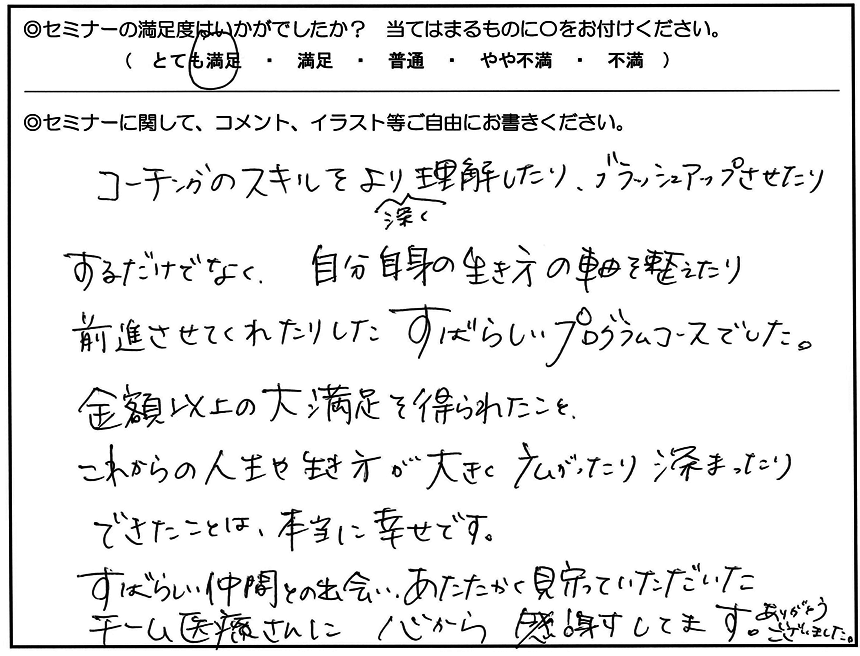 ◎セミナーの満足度はいかがでしたか？ 当てはまるものに○をお付けください。
（ とても満足 ・ 満足 ・ 普通 ・ やや不満 ・ 不満 ）
◎セミナーに関して、コメント、イラスト等ご自由にお書きください。
コーチングのスキルをより深く理解したり、ブラッシュアップさせたり
するだけでなく、自分自身の生き方の軸を整えたり
前進させてくれたりしたすばらしいプログラムコースでした。
金額以上の大満足を得られたこと、
これからの人生や生き方が大きく広がったり深まったり
できたことは、本当に幸せです。
すばらしい仲間との出会い、あたたかく見守っていただいた
チーム医療さんに 心から 感謝してます。ありがとう
ございました。